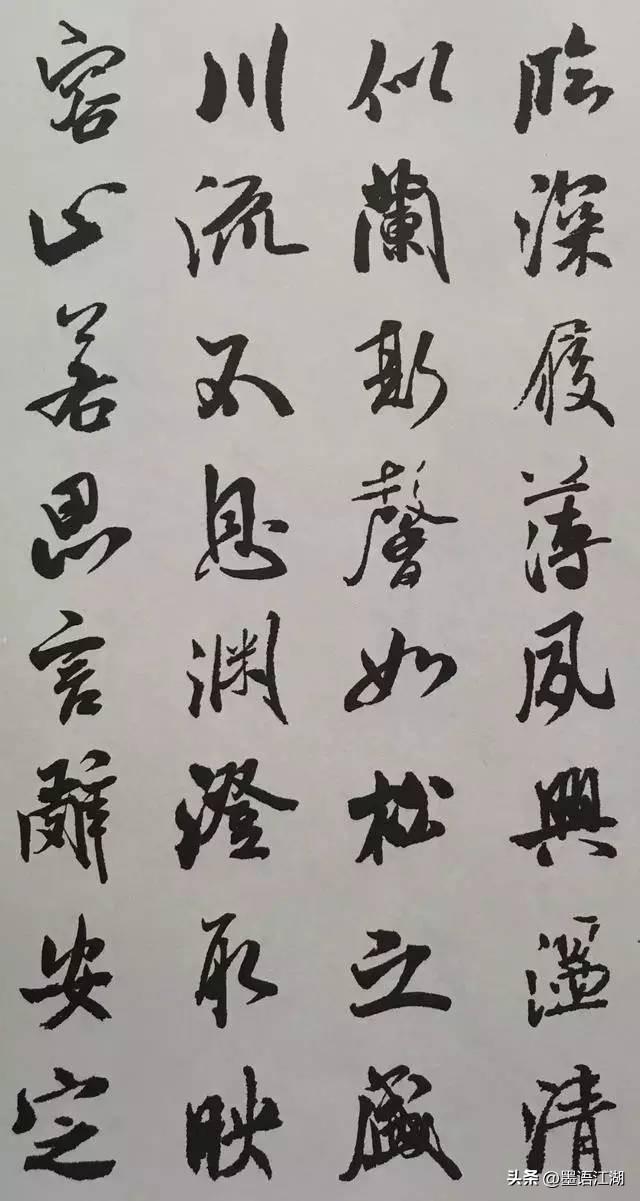 臨深履薄夙興溫清
似蘭斯馨如松之盛
川流不息渊澄取映
容止若思言辭安定
头条 @墨语江湖